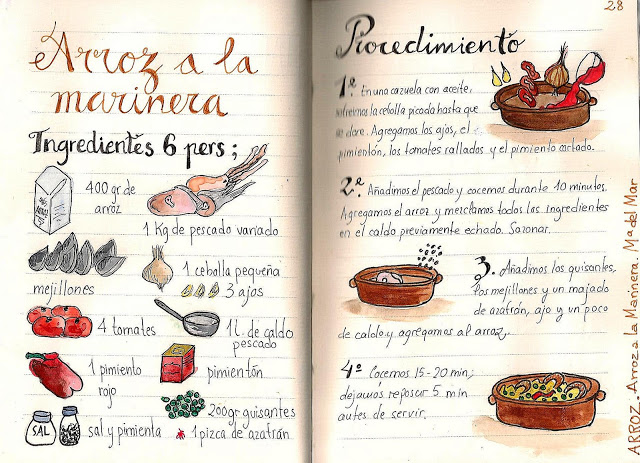 Arroz a la
marinera
Ingredientes 6 pers;
400 gr de
arroz
1 Kg de pescado variado
mejillones
1 cebolla pequeña
3 ajos
4 tomates
1 l. de caldo
pescado
1 pimiento
rojo
pimientón
SAL
sal y pimienta
200gr guisantes
1 pizca de azafrán
28
Procedimiento
1º. En una cazuela con aceite,
sofreímos la cebolla picada hasta que
se dore. Agregamos los ajos, el
pimientón, los tomates rallados y el pimiento cortado.
2º. Añadimos el pescado y cocemos durante 10 minutos.
Agregamos el arroz y mezclamos todos los ingredientes
en el caldo previamente echado. Sazonar.
3. Añadimos los guisantes,
los mejillones y un majado
de azafrán, ajo y un poco
de caldo y agregamos al arroz.
4º Cocemos 15-20 min;
dejamos reposar 5 min
antes de servir.
ARROZ. Arroz a la Marinera. Ma del Mar